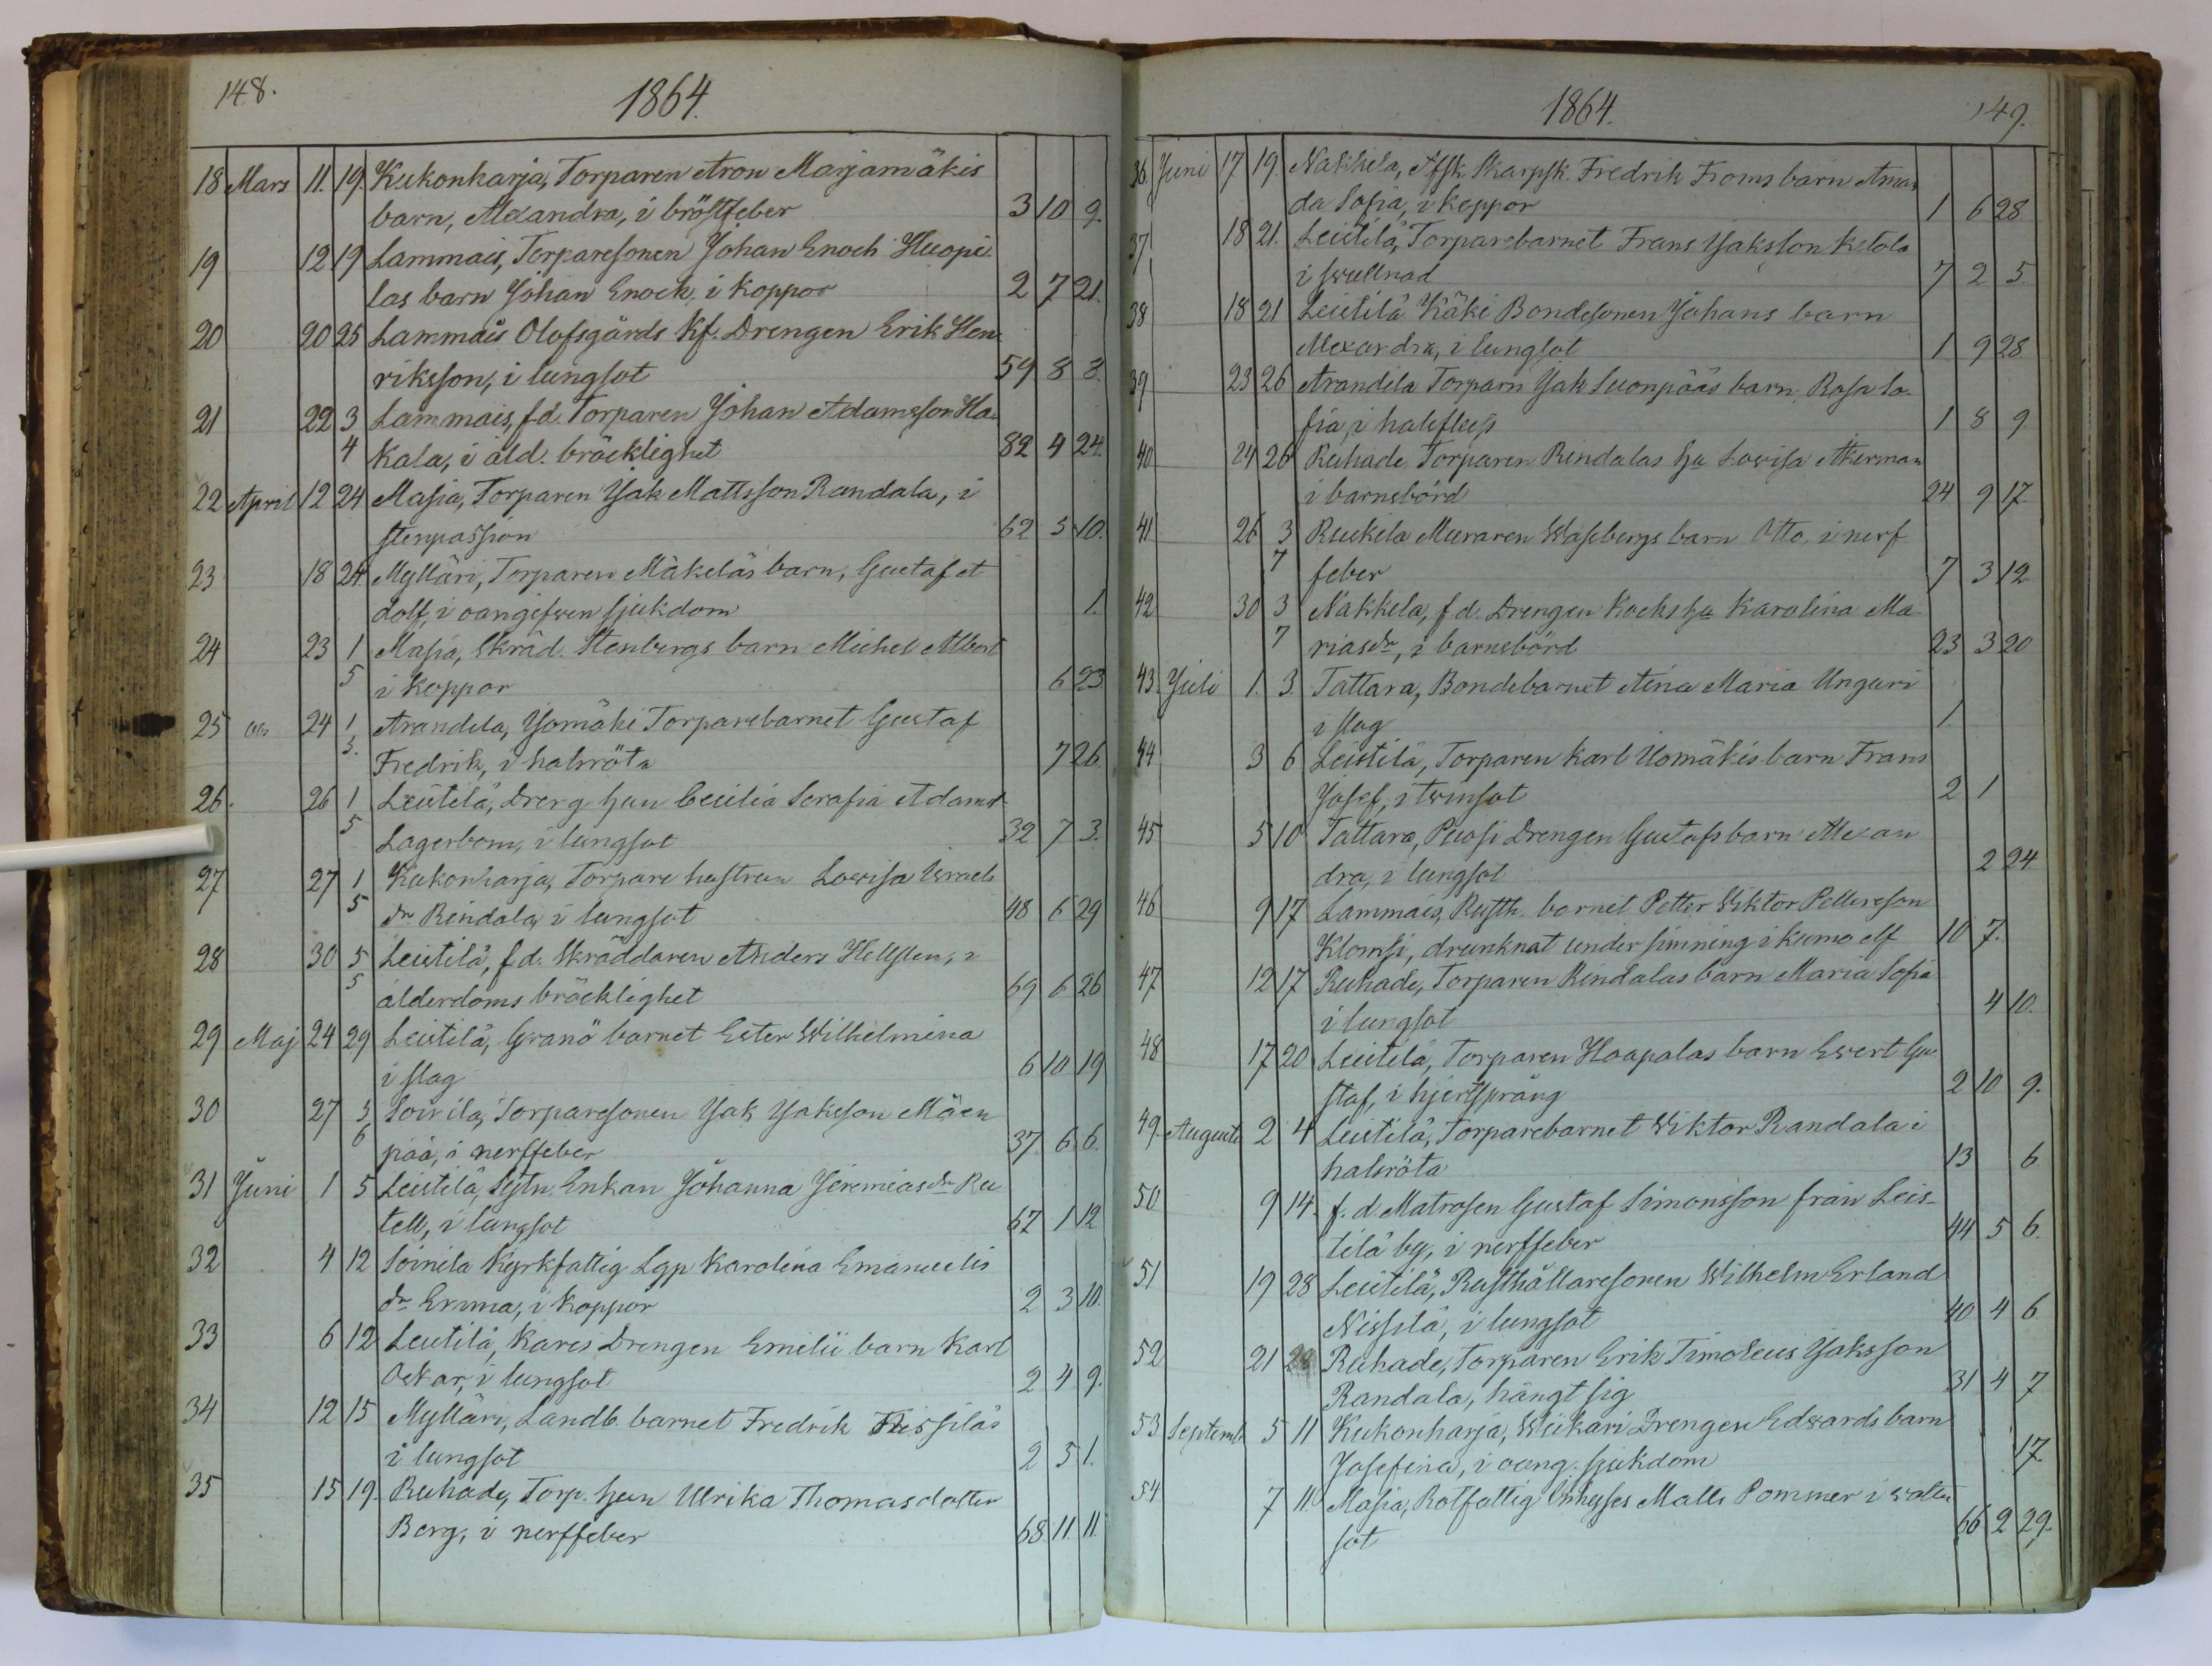 148.
1864.
18 Mars 11. 19. Kukonharja, Torparen Aron Marjamäkis
barn, Alexandra, i bröstfeber 3 10 9.
19 12 19 Lammais, Torparesonen Johan Enoch Huopi-
las barn Johan Enoch, i koppor 2 7 21.
20 20 25 Lammais Olofsgårds Kf. Drengen Erik Hen-
riksson, i lungsot 59 8 3.
21 22 3 Lammais, f.d. Torparen Johan Adamsson Ha-
4 kala, i åld. bräcklighet 82 4 24.
22 April 12 24 Masia, Torparen Jak Mattsson Randala, i
stenpassion 62 3 10.
23 18 24 Mylläri, Torparen Mäkeläs barn, Gustaf A-
dolf, i oangifven sjukdom 1.
24 23 1 Masia, Skräd. Stenbergs barn Michel Albert
5 i koppor 6 23
25 24 1 Arandila, Jomäki Torparebarnet Gustaf
5. Fredrik, i halsröta 7 26
26. 26 1 Leistilä, Dreng hun Cecilia Serafia Adamsdr
5 Lagerbom, i lungsot 32 7 3.
27 27 1 Kukonharja, Torpare hustrun Lovisa Israels
5 dr Rindala, i lungsot 48 6 29
28 30 5 Leistilä, f.d. Skräddaren Anders Hellsten, i
5 ålderdoms bräcklighet 69 6 26
29 Maj 24 29 Leistilä, Granö barnet Ester Wilhelmina
i slag 6 10 19
30 27 5 Soinila, Torparesonen Jak Jaksson Mäen
6 pää, i nerffeber 37 6 6.
31 Juni 1 5 Leistilä, Sytn. Enkan Johanna Jeremiasdr Ru
tell, i lungsot 67 1 12
32 4 12 Soinila Kyrkfattig Lgp Karolina Emanuelis
dr Emma, i koppor 2 3 10.
33 6 12 Leistilä, Kares Drengen Emilii barn Karl
Oskar, i lungsot 2 4 9.
34 12 15 Mylläri, Landb. barnet Fredrik Nissiläs
i lungsot 2 5 1.
35 15 19. Ruhade, Torp. hun Ulrika Thomasdotter
Berg, i nerffeber 68. 11. 11.
1864.
149.
36. Juni 17 19. Nakkela, Afsk. Skarpsk. Fredrik Froms barn Aman
da Sofia, i koppor 1 6 28
37 18 21. Leistilä, Torparebarnet Frans Jaksson Ketola
i svullnad 7 2 5.
38 18 21 Leistilä Käki Bondesonen Johans barn
Alexandra, i lungsot 1 9 28
39 23 26 Arandila Torparn Jak Suonpääs barn, Rosa So-
fia, i halsfluss 1 8 9
40 24 26 Ruhade Torparen Rindalas hu Lovisa Åkerman
i barnsbörd 24 9 17
41 26 3 Ruskila Muraren Wasbergs barn Otto, i nerf
7 feber 7 3 12
42 30 3 Nakkela, f.d. Drengen Kocks hu Karolina Ma-
7 riasdr, i barnsbörd 23 3 20
43. Juli 1. 3. Tattara, Bondebarnet Aina Maria Unguri
i slag 1
44 3 6 Leistilä, Torparen Karl Uomäkis barn Frans
Josef, i tvinsot 2 1
45 5 10 Tattara, Puosi Drengen Gustafs barn Alexan
dra, i lungsot 2 24
46 9 17 Lammais, Rusth. barnet Petter Wiktor Pettersson
Klomsi, drunknat under simning i Kumo elf 10 7.
47 12 17 Ruhade, Torparen Rindalas barn Maria Sofia
i lungsot 4 10.
48 17 20 Leistilä, Torparen Haapalas barn Evert Gu
staf, i hjertsprång 2 10 9.
49. Augusti 2 4 Leistilä, Torparebarnet Wiktor Randala i
halsröta 13 6
50 9 14. f.d. Matrosen Gustaf Simonsson från Leis-
tilä by, i nerffeber 44 5 6.
51 19 28 Leistilä, Rusthållaresonen Wilhelm Erland
Nissilä, i lungsot 40 4 6
52 21 28 Ruhade, Torparen Erik Timoleus Jaksson
Randala, hängt sig 31 4 7
53 Septemb. 5 11 Kukonharja, Wiikari Drengen Edvards barn
Josefina, i oang. sjukdom 17.
54 7 11. Masia, Rotfattig Inhyses Malls Pommer i vatten
sot 66 2 29.